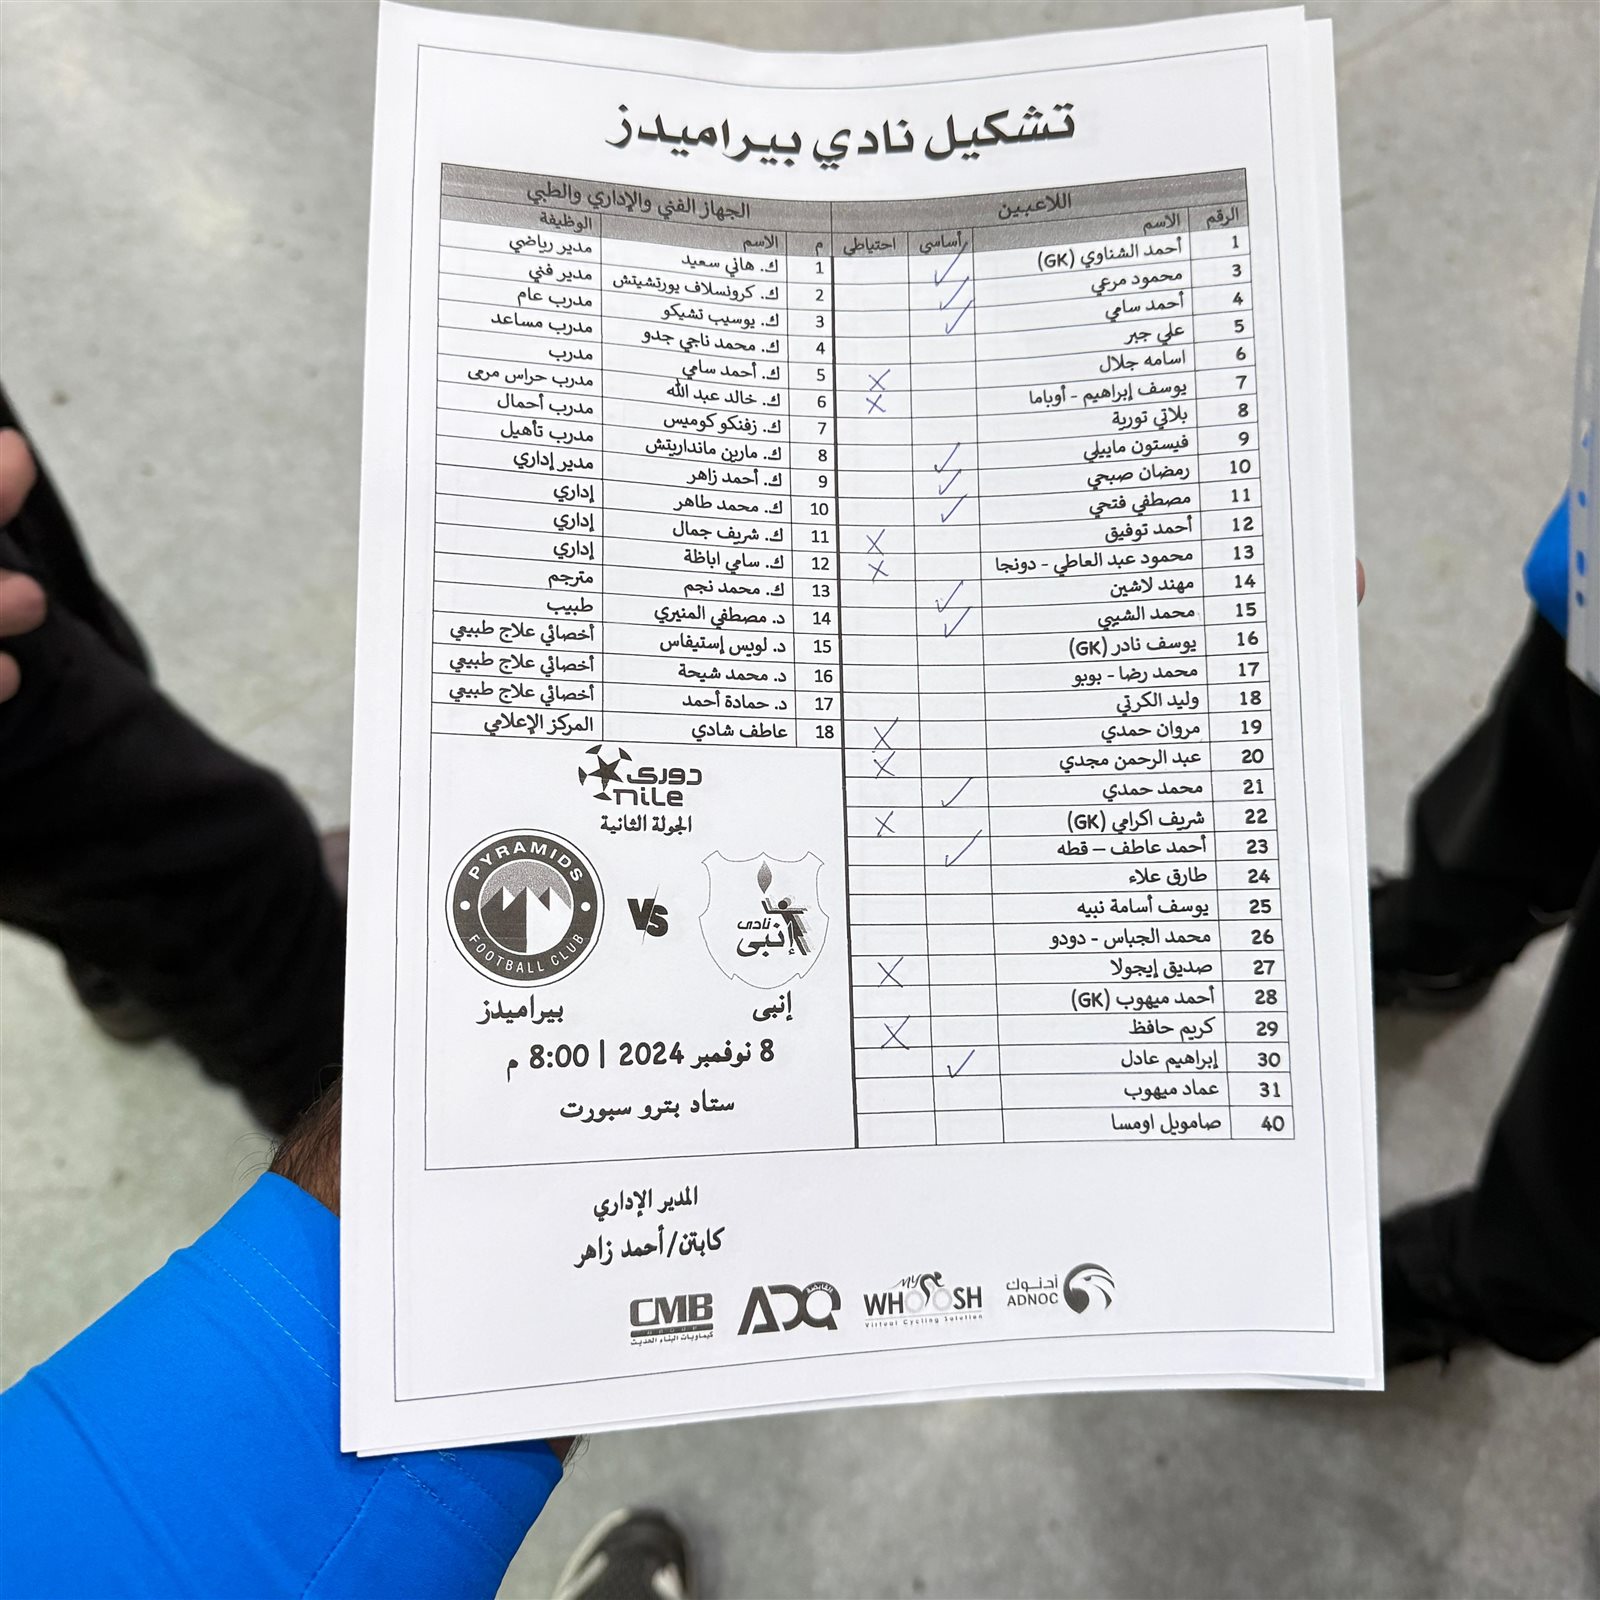 تشكيل نادي بيراميدز
اللاعبين
الرقم الاسم أساسي احتياطي
1 أحمد الشناوي (GK) ✓
3 محمود مرعي ✓
4 أحمد سامي ✓
5 علي جبر
6 اسامه جلال
7 يوسف إبراهيم - أوباما X
8 بلاتي تورية X
9 فيستون مايلي ✓
10 رمضان صبحي ✓
11 مصطفي فتحي ✓
12 أحمد توفيق X
13 محمود عبد العاطي - دونجا X
14 مهند لاشين ✓
15 محمد الشيبي ✓
16 يوسف نادر (GK)
17 محمد رضا - بوبو
18 وليد الكرتي
19 مروان حمدي X
20 عبد الرحمن مجدي X
21 محمد حمدي ✓
22 شريف اكرامي (GK) X
23 أحمد عاطف – قطه ✓
24 طارق علاء
25 يوسف أسامة نبيه
26 محمد الجباس - دودو
27 صديق إيجولا X
28 أحمد ميهوب (GK)
29 كريم حافظ X
30 إبراهيم عادل ✓
31 عماد ميهوب
40 صامويل اومسا
الجهاز الفني والإداري والطبي
م الاسم الوظيفة
1 ك. هاني سعيد مدير رياضي
2 ك. كرونسلاف يورتشيتش مدير فني
3 ك. يوسيب تشيكو مدرب عام
4 ك. محمد ناجي جدو مدرب مساعد
5 ك. أحمد سامي مدرب
6 ك. خالد عبد الله مدرب حراس مرمى
7 ك. زفنكو كوميس مدرب أحمال
8 ك. مارين مانداريتش مدرب تأهيل
9 ك. أحمد زاهر مدير إداري
10 ك. محمد طاهر إداري
11 ك. شريف جمال إداري
12 ك. سامي اباظة إداري
13 ك. محمد نجم مترجم
14 د. مصطفي المنيري طبيب
15 د. لويس إستيفاس أخصائي علاج طبيعي
16 د. محمد شيحة أخصائي علاج طبيعي
17 د. حمادة أحمد أخصائي علاج طبيعي
18 عاطف شادي المركز الإعلامي
دوري
nile
الجولة الثانية
نادى
إنبى
VS
PYRAMIDS
FOOTBALL CLUB
إنبى
بيراميدز
8 نوفمبر 2024 | 8:00 م
ستاد بترو سبورت
المدير الإداري
كابتن/أحمد زاهر
أدنوك
ADNOC
MY
WHOOSH
Virtual Cycling Solution
ADQ
القابضة
CMB
GROUP
كيماويات البناء الحديث